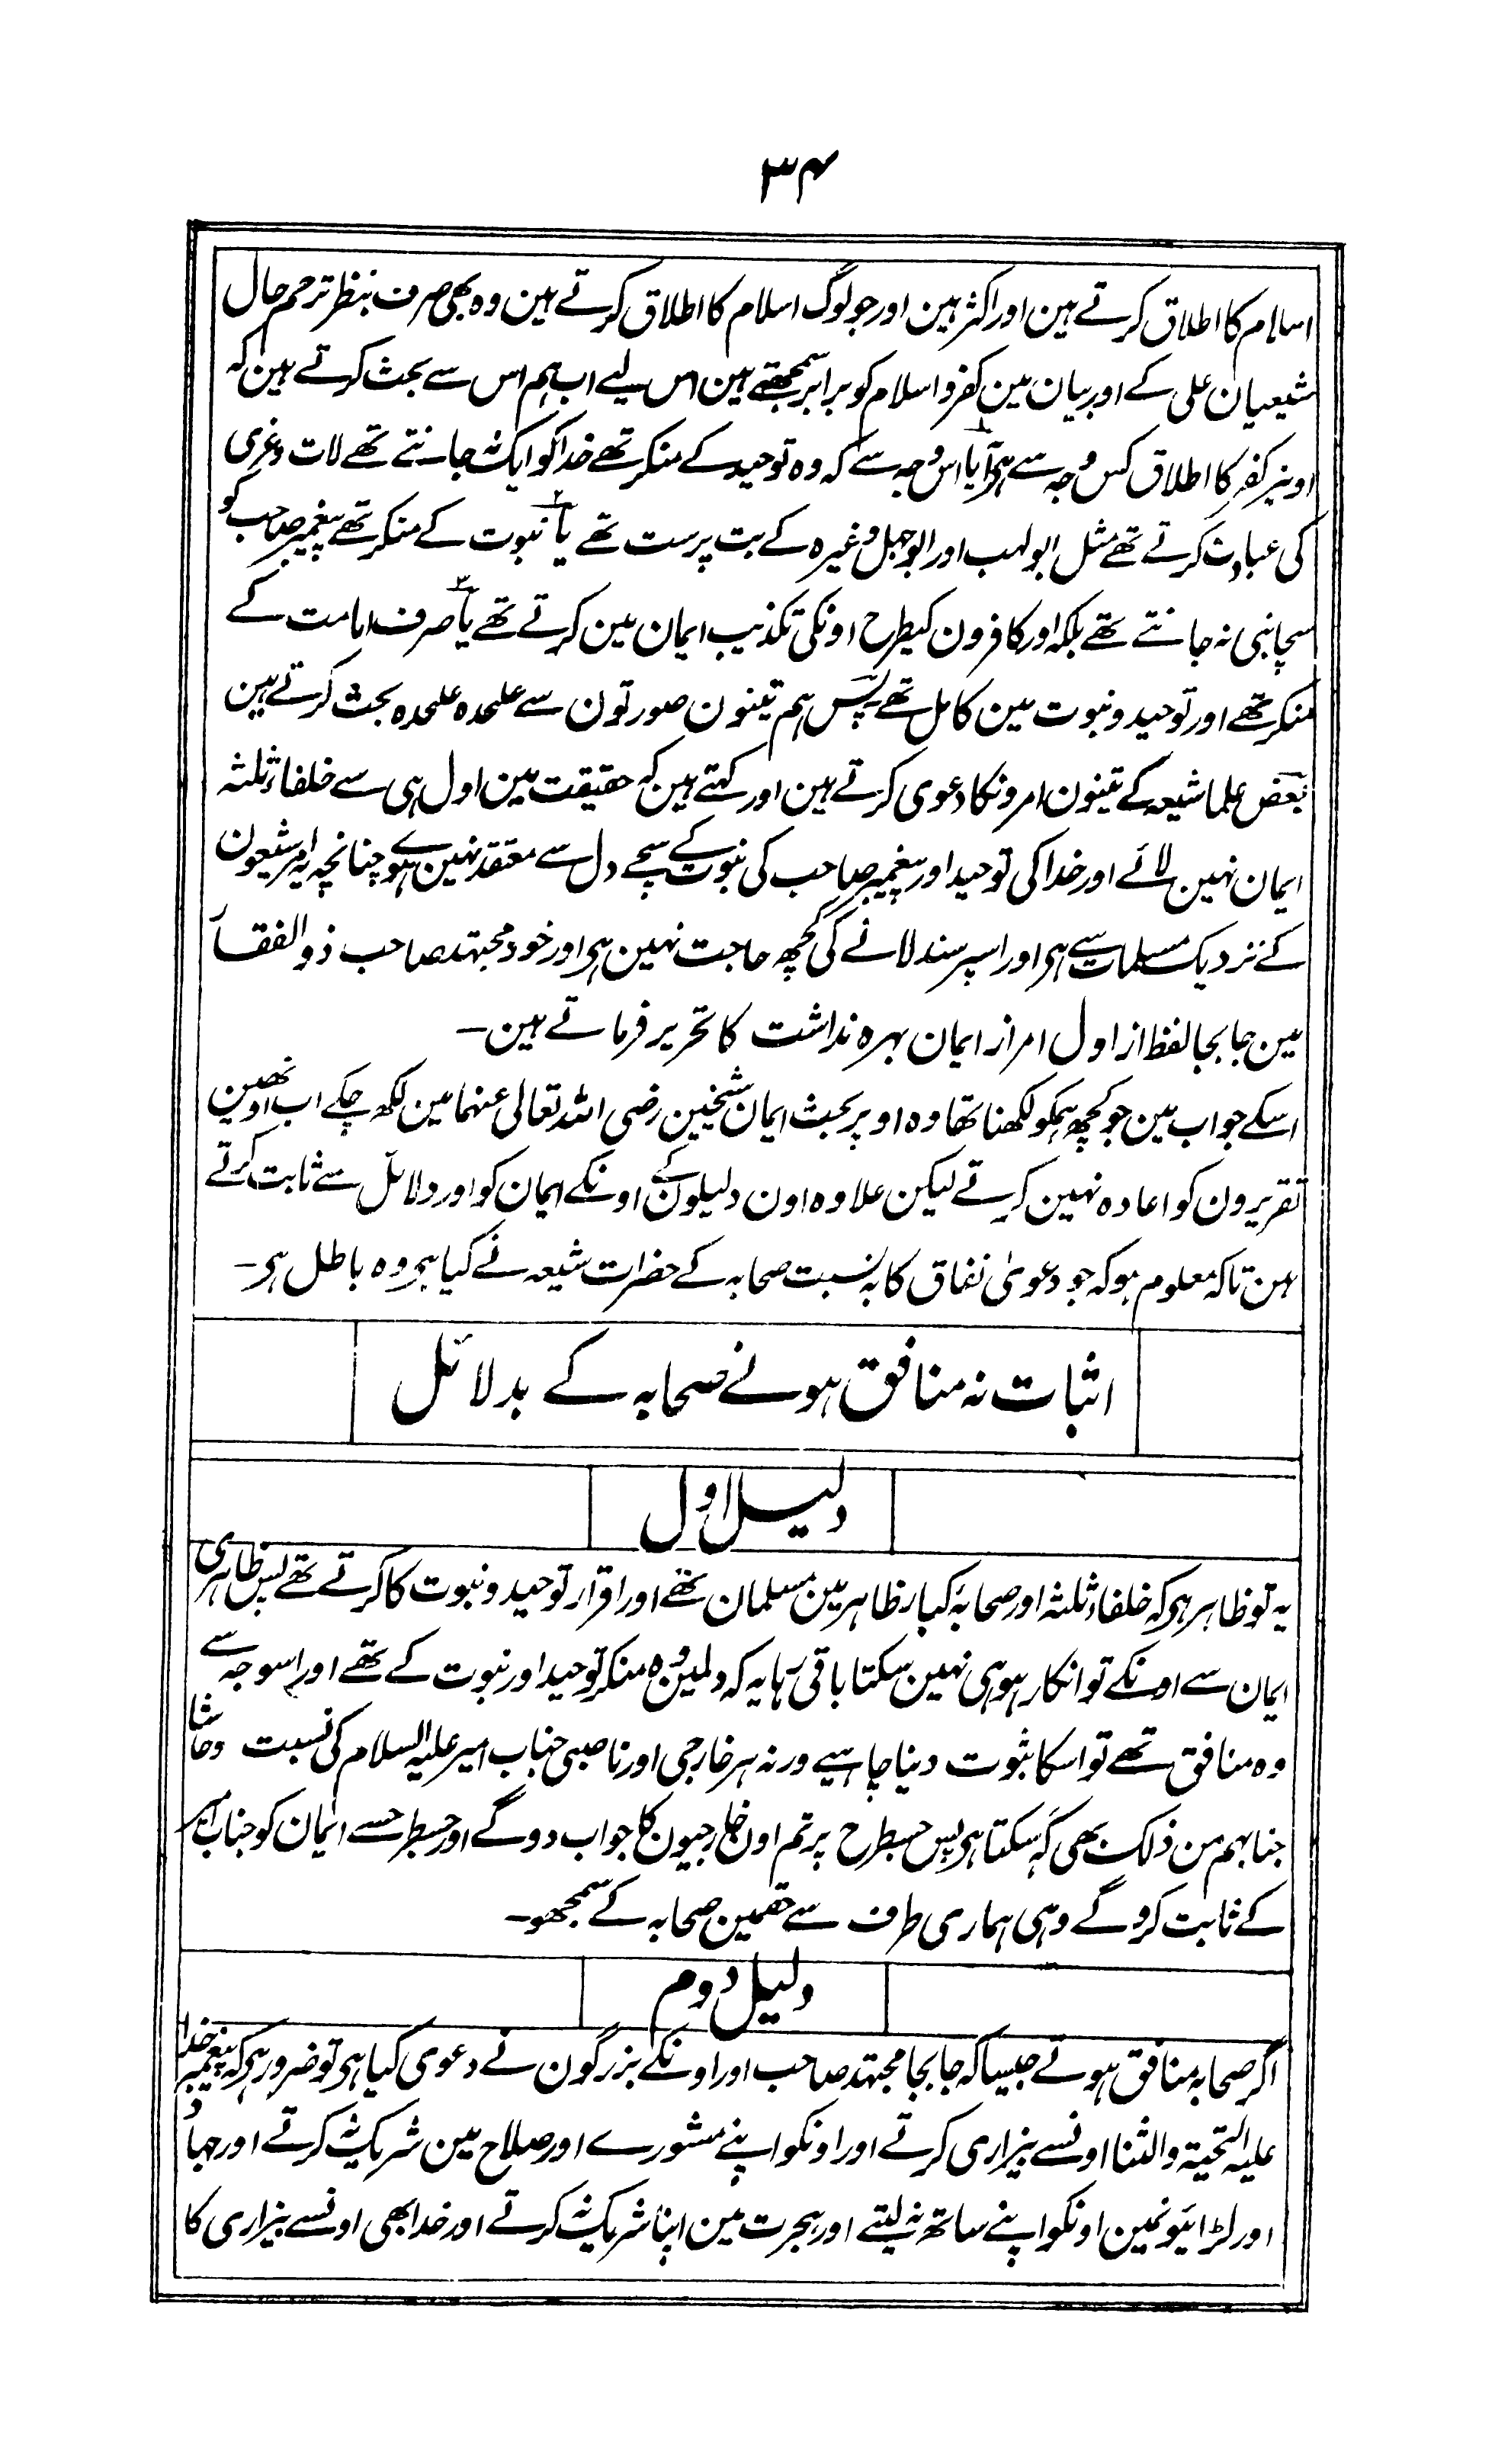 ۳۴
اسلام کا اطلاق کرتے ہین اور اکثر ہین اور جو لوگ اسلام کا اطلاق کرتے ہین وہ بھی صرف بنظر ترحم حال
شیعیان علی کے اور بیان مین کفر و اسلام کو برابر سمجھتے ہین اس لیے اب ہم اس سے بحث کرتے ہین کہ
اونپر کفر کا اطلاق کس وجہ سے ہی آیا اس وجہ سے کہ وہ توحید کے منکر تھے خدا کو ایک نہ جانتے تھے لات و عزی
کی عبادت کرتے تھے مثل ابولہب اور ابوجہل وغیرہ کے بت پرست تھے یا نبوت کے منکر تھے پیغمبر صاحب کو
سچا نبی نہ جانتے تھے بلکہ اور کافرون کیطرح اونکی تکذیب ایمان مین کرتے تھے یا صرف امامت کے
منکر تھے اور توحید و نبوت مین کامل تھے پس ہم تینون صورتون سے علحدہ علحدہ بحث کرتے ہین
بعض علما شیعہ کے تینون امرونکا دعوی کرتے ہین اور کہتے ہین کہ حقیقت مین اول ہی سے خلفاء ثلثہ
ایمان نہین لائے اور خدا کی توحید اور پیغمبر صاحب کی نبوت کے سچے دل سے معتقد نہین ہوے چنانچہ یہ امر شیعون
کے نزدیک مسلمات سے ہی اور اسپر سند لانے کی کچھ حاجت نہین ہی اور خود مجتہد صاحب ذوالفقار
مین جا بجا لفظ از اول امر از ایمان بہرہ نداشت کا تحریر فرماتے ہین۔
اسکے جواب مین جو کچھ ہمکو لکھنا تھا وہ اوپر بحث ایمان شیخین رضی اللہ تعالی عنہما مین لکھ چکے اب اونھین
تقریرون کو اعادہ نہین کرتے لیکن علاوہ اون دلیلون کے اونکے ایمان کو اور دلائل سے ثابت کرتے
ہین تاکہ معلوم ہو کہ جو دعویٰ نفاق کا بہ نسبت صحابہ کے حضرات شیعہ نے کیا ہی وہ باطل ہی۔
اثبات نہ منافق ہونے صحابہ کے بدلائل
دلیل اول
یہ تو ظاہر ہی کہ خلفاء ثلثہ اور صحابۂ کبار ظاہر مین مسلمان تھے اور اقرار توحید و نبوت کا کرتے تھے پس ظاہری
ایمان سے اونکے تو انکار ہو ہی نہین سکتا باقی رہا یہ کہ دلمین وہ منکر توحید اور نبوت کے تھے اور اسوجہ سے
وہ منافق تھے تو اسکا ثبوت دینا چاہیے ورنہ ہر خارجی اور ناصبی جناب امیر علیہ السلام کی نسبت وحاشا
جنابہم من ذلک بھی کہ سکتا ہی پس جسطرح پر تم اون خارجیون کا جواب دوگے اور جسطرحسے ایمان کو جناب امیر
کے ثابت کروگے وہی ہماری طرف سے حقمین صحابہ کے سمجھو۔
دلیل دوم
اگر صحابہ منافق ہوتے جیسا کہ جا بجا مجتہد صاحب اور اونکے بزرگون نے دعوی کیا ہی تو ضرور ہی کہ پیغمبر خدا
علیہ التحیۃ والثنا اونسے بیزاری کرتے اور اونکو اپنے مشورے اور صلاح مین شریک نہ کرتے اور جہاد
اور لڑائیونمین اونکو اپنے ساتھ نہ لیتے اور ہجرت مین اپنا شریک نہ کرتے اور خدا بھی اونسے بیزاری کا